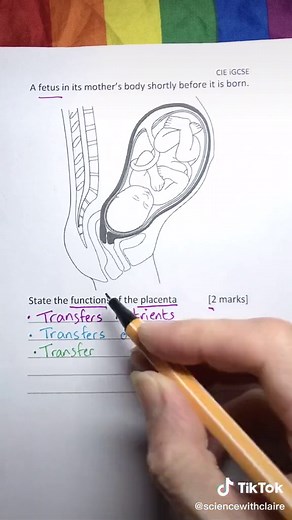 CIE iGCSE
A fetus in its mother's body shortly before it is born.
State the functions of the placenta [2 marks]
• Transfers nutrients
• Transfers
• Transfer
TikTok
@sciencewithclaire